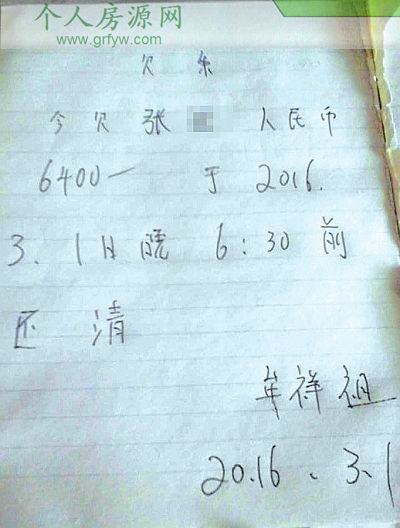 个人房源网
www.grfyw.com
欠条
今欠张 人民币
6400一 于2016.
3.1日晚6:30前
还清
牟祥祖
2016、3、1